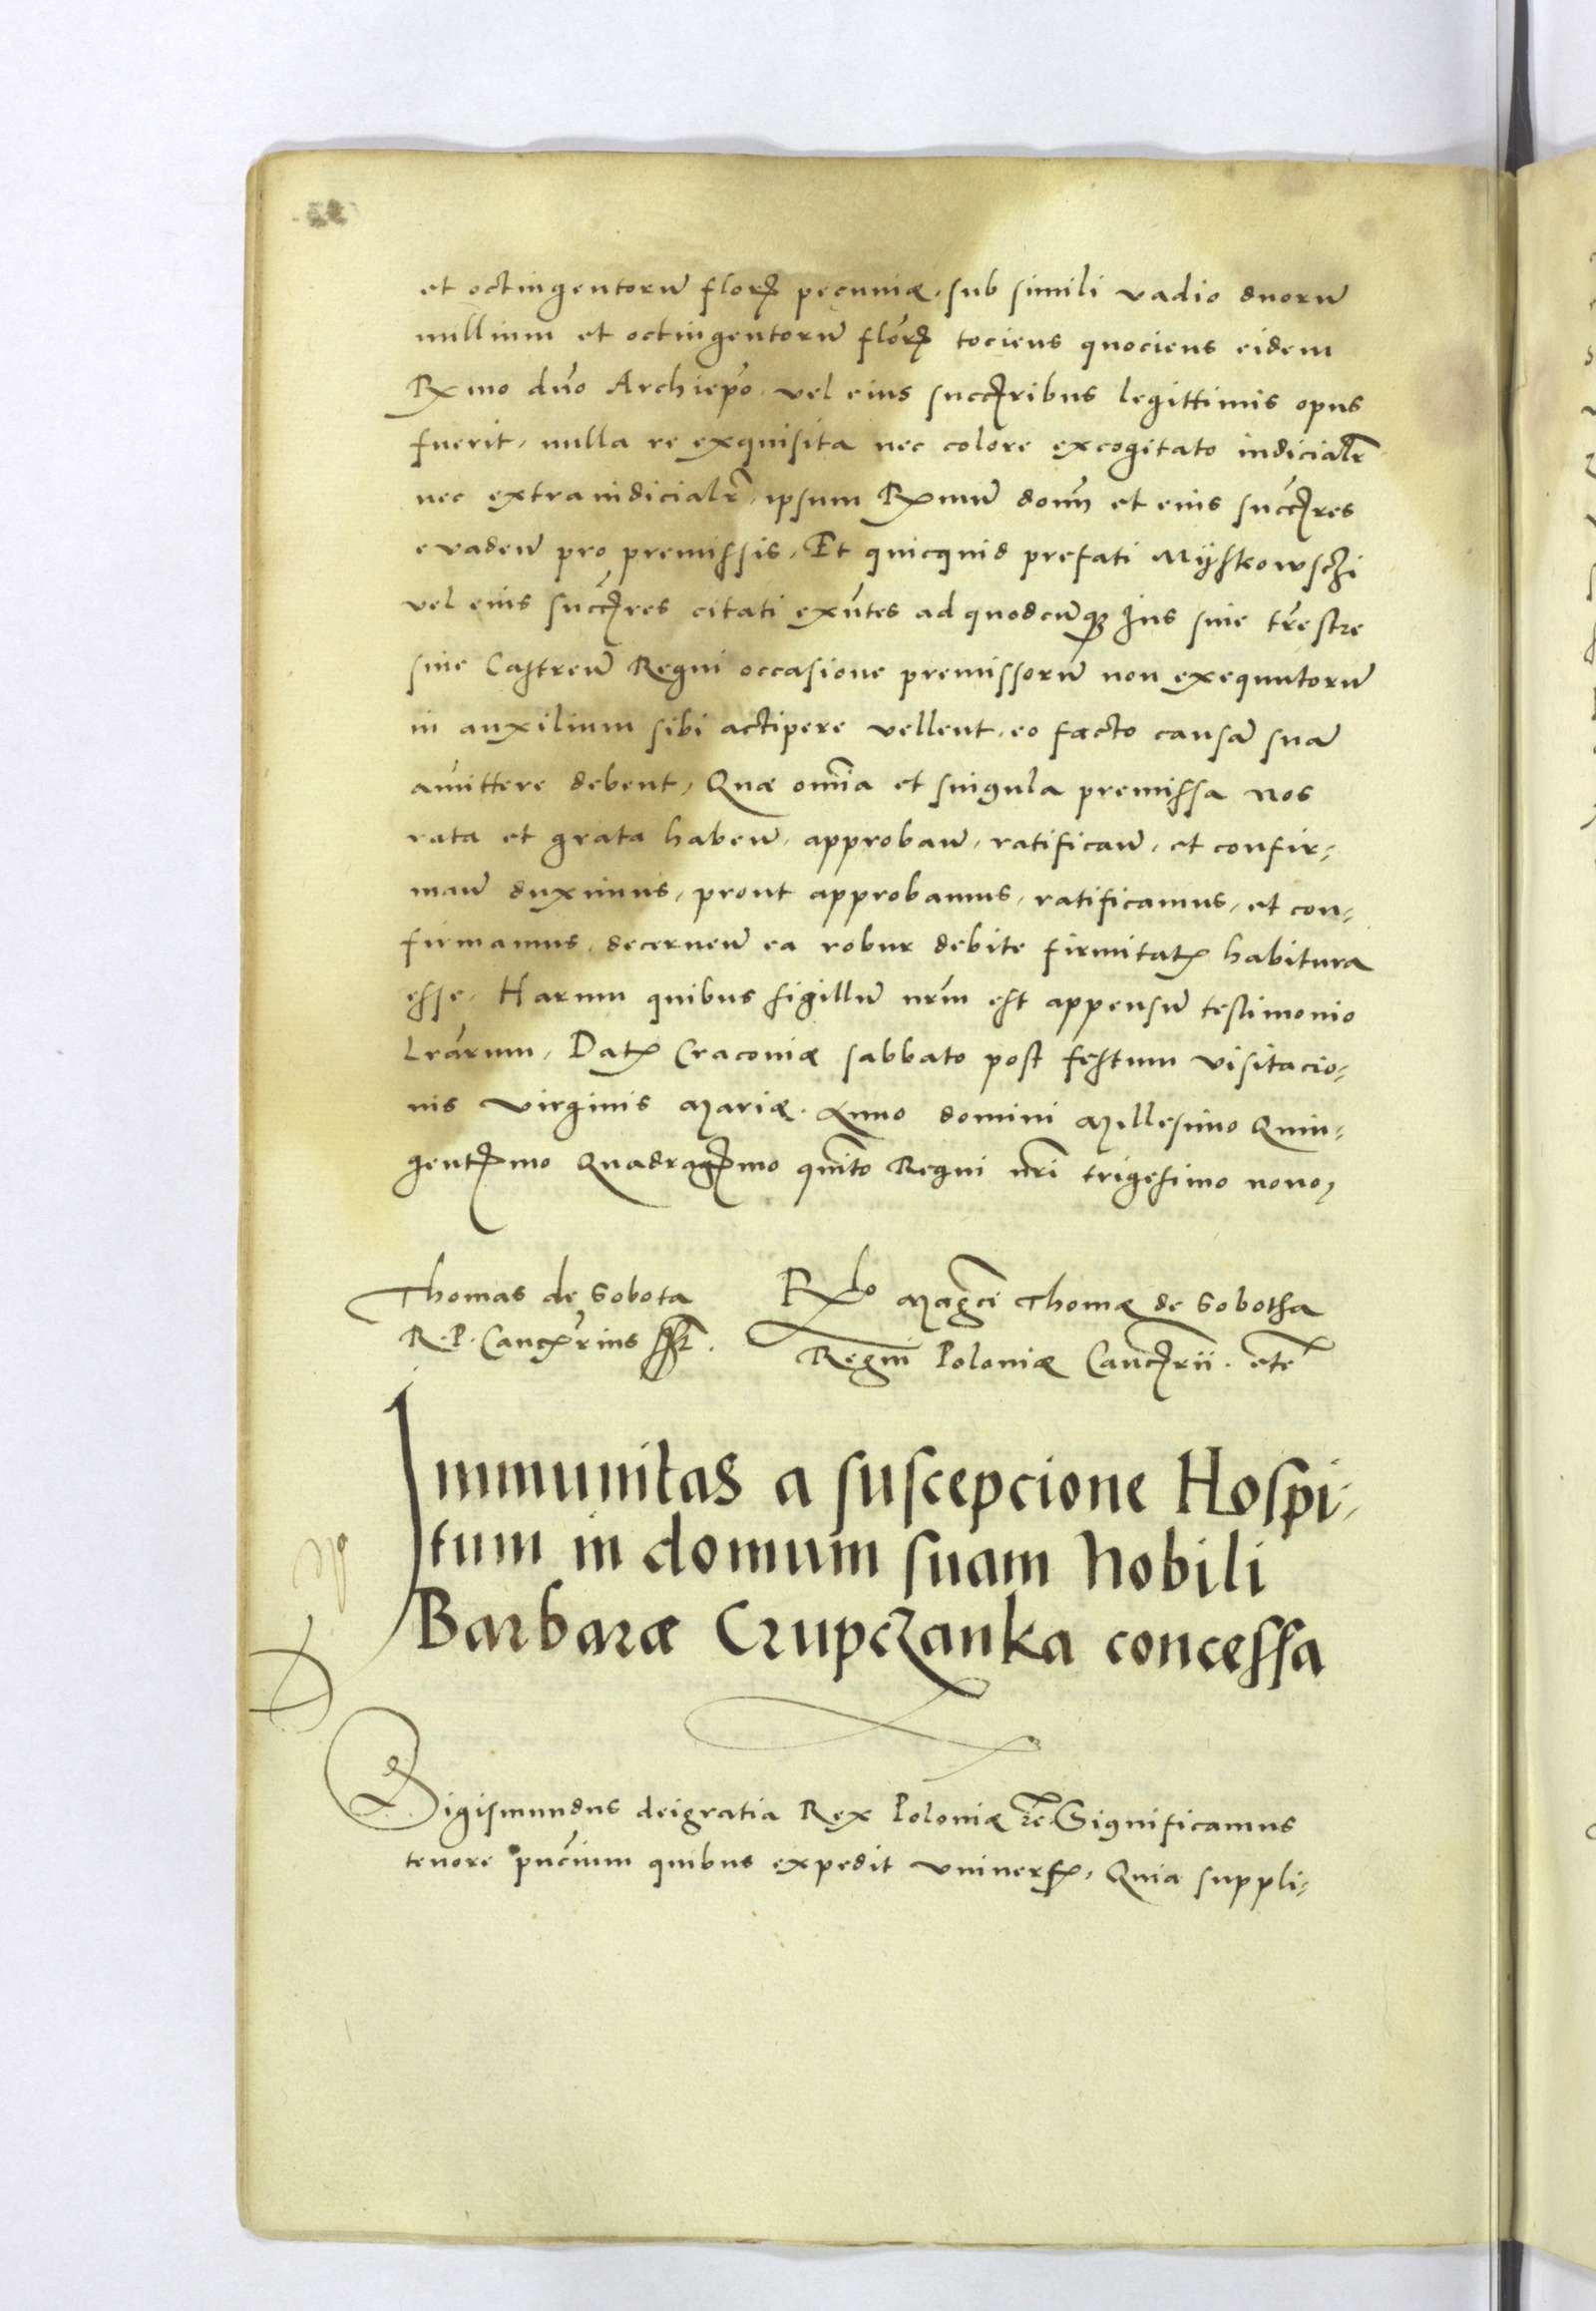 et octingentorū florꝝ pecuniæ, sub simili vadio duorū
millium et octingentorū florꝝ tociens quociens eidem
Rmo dño Archiepo vel eius succribus legittimis opus
fuerit, nulla re exquisita nec colore excogitato iudicialr
nec extraiudicialr, ipsum Rmum domn et eius succres
evadeñ pro premissis, Et quicquid prefati Myschkowsczi
vel eius succres citati exñtes ad quodcūqꝫ Ius siue tresctre
siue Castreñ Regni occasione premissorū non exequutorū
in auxilium sibi accipere vellent, eo facto causā suā
amittere debent, Quæ omia et singula premissa nos
rata et grata habeñ, approbañ, ratificañ, et confir-
mañ duximus, prout approbamus, ratificamus, et con-
firmamus, decerneñ ea robur debite firmitatꝭ habitura
esse, Harum quibus sigillū nrm est appensū testimonio
lrarum, Datꝭ Cracouiæ sabbato post festum visitacio-
nis virginis Mariæ. Anno domini Millesimo Quin-
gentmo Quadragmo quīto Regni nri trigesimo nono,
Thomas de Sobota
R. P. Cancrius sst.
Rlo Magci Thomæ de Sobotha
Regni Poloniæ Cancrii. etc
Immunitas a suscepcione Hospi-
tum in domum suam Nobili
Barbaræ Crupczanka concessa
Sigismundus dei gratia Rex Poloniæ etc. Significamus
tenore pñcium quibus expedit vniuersꝭ, Quia suppli-